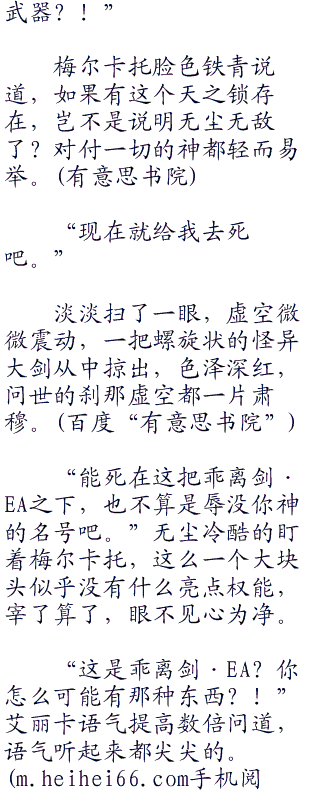 武器？！”
梅尔卡托脸色铁青说
道，如果有这个天之锁存
在，岂不是说明无尘无敌
了？对付一切的神都轻而易
举。(有意思书院)
“现在就给我去死
吧。”
淡淡扫了一眼，虚空微
微震动，一把螺旋状的怪异
大剑从中掠出，色泽深红，
问世的刹那虚空都一片肃
穆。(百度“有意思书院”)
“能死在这把乖离剑·
EA之下，也不算是辱没你神
的名号吧。”无尘冷酷的盯
着梅尔卡托，这么一个大块
头似乎没有什么亮点权能，
宰了算了，眼不见心为净。
“这是乖离剑·EA？你
怎么可能有那种东西？！”
艾丽卡语气提高数倍问道，
语气听起来都尖尖的。
(m.heihei66.com手机阅